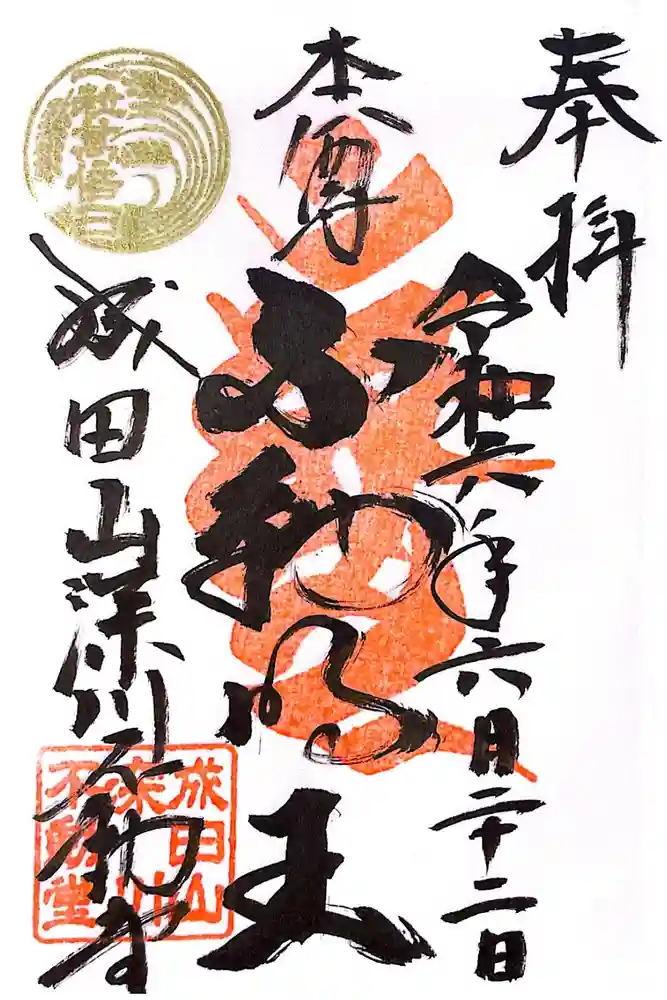 奉拝
令和六年六月二十二日
本尊
不動明王
成田山深川不動
成田山
深川
不動堂